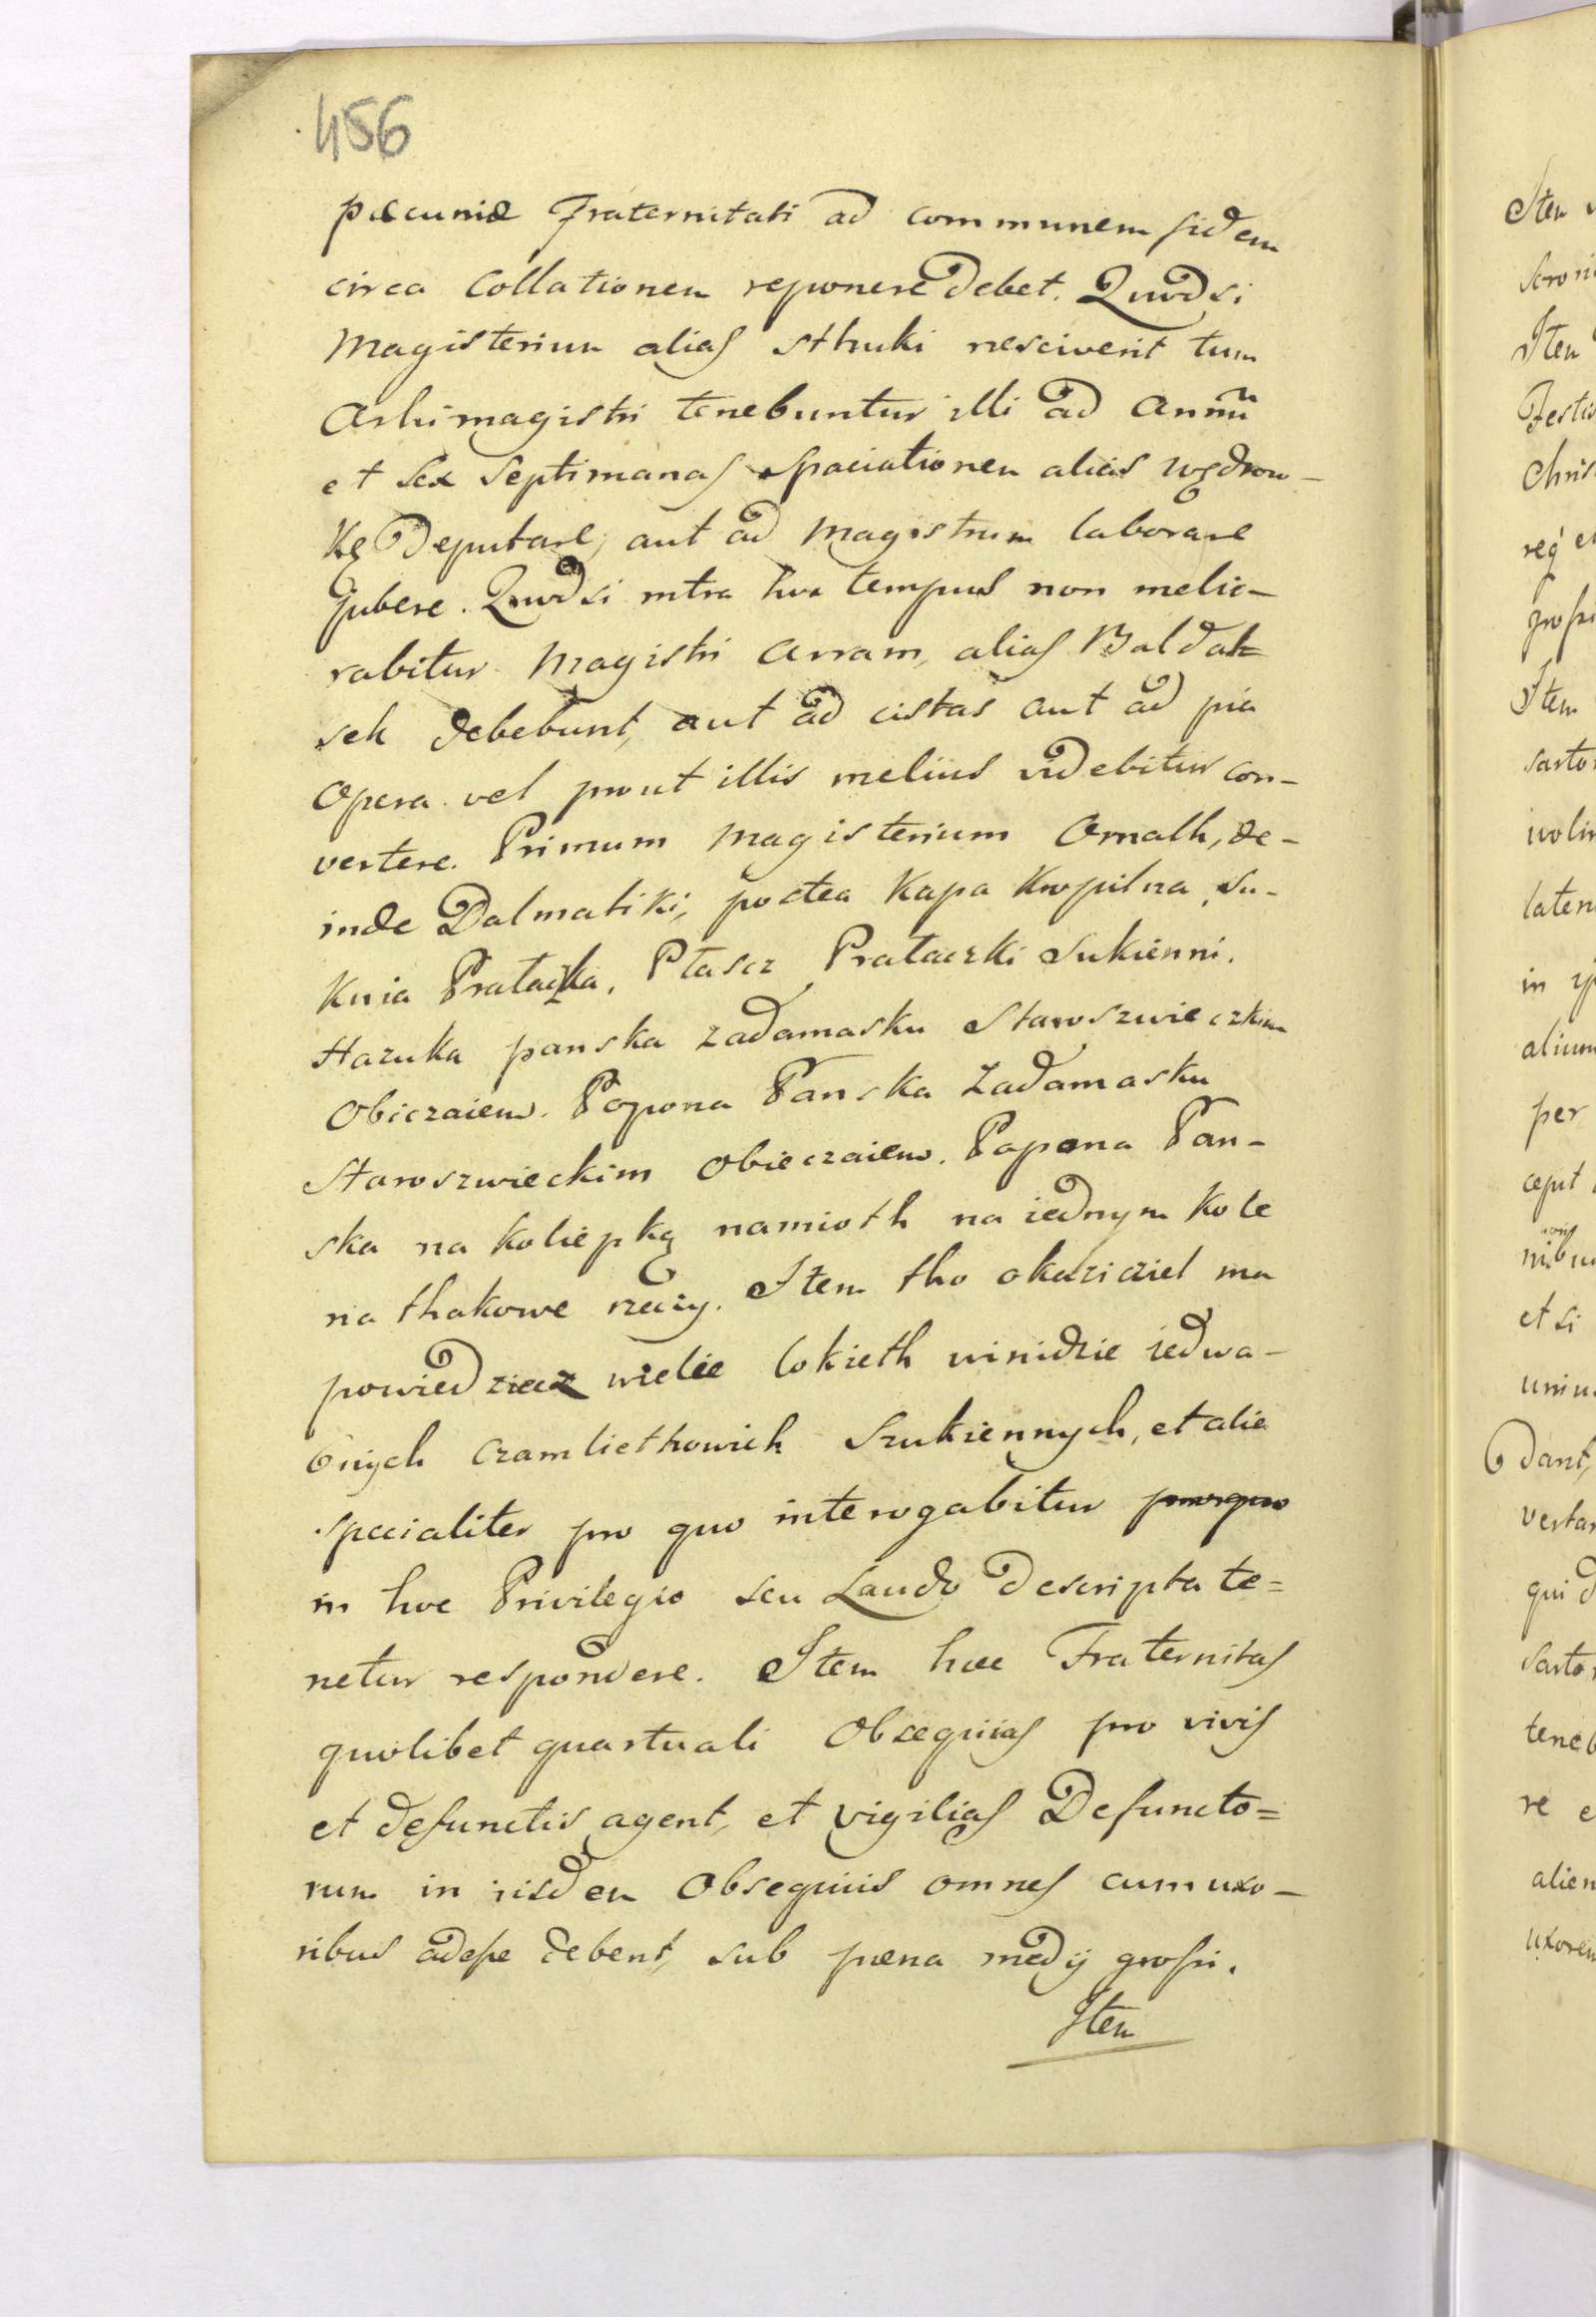 456
pæcuniæ Fraternitati ad communem fidem
circa Collationem reponere debet. Quodsi
Magisterium alias sthuki nesciverit tum
Archimagistri tenebuntur illi ad Annũ
et sex septimanas spaciationem alias wędrow-
kę Deputare, aut ad Magistrum laborare
jubere. Quodsi intra hoc tempus non melio-
rabitur Magistri Arram, alias Baldak=
sek debebunt, aut ad cistas aut ad pia
Opera vel prout illis melius videbitur con-
vertere. Primum Magisterium Ornath, de-
inde Dalmatiki, postea Kapa Kropilna, Su-
knia Prałaczka, Płascz Prałaczki Sukienni.
Hazuka panska zadamasku Staroszwieczkim
Obiczaiem. Popona Panska Zadamasku
Staroszwieckim Obieczaiem. Popona Pan-
ska na koliepkę namioth na iednym kole
na thakowe rzeczy. Item tho okaziciel ma
powiedziecz wielie lokieth winidzie iedwa-
bnych czamliethowich Szukiennych, et alia
specialiter pro quo interogabitur
in hoc Privilegio seu Laudo Descripta te=
netur respondere. Item hæc Fraternitas
quolibet quartuali Obsequias pro vivis
et defunctis agent, et vigilias Defuncto=
rum in iisdem Obsequiis omnes cum uxo-
ribus adesse debent, sub pæna medij grossi.
Item